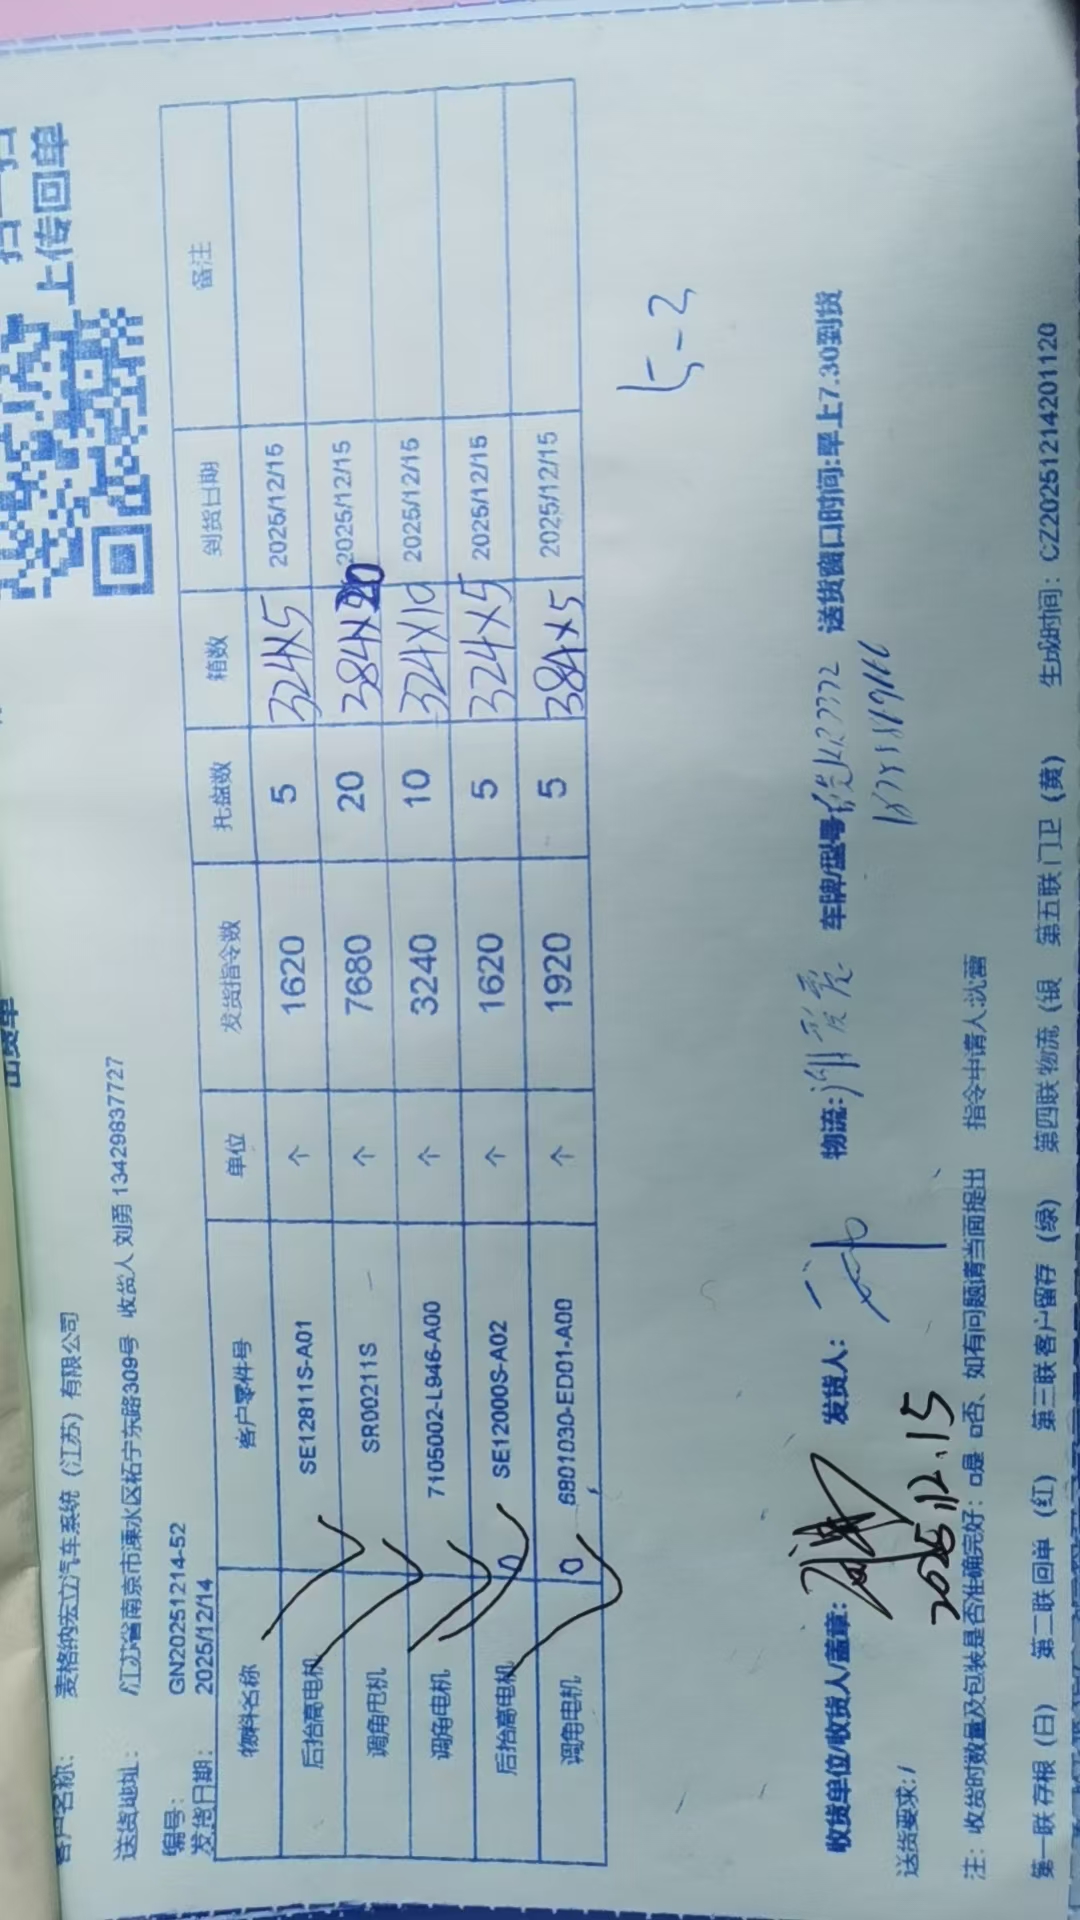 扫一扫
上传回单
出货单
客户名称: 麦格纳宏立汽车系统（江苏）有限公司
送货地址: 江苏省南京市溧水区柘宁东路309号 收货人 刘勇 13429837727
编号: GN20251214-52
发货日期: 2025/12/14
物料名称 客户零件号 单位 发货指令数 托盘数 箱数 到货日期 备注
后抬高电机 SE12811S-A01 个 1620 5 324×5 2025/12/15
调角电机 SR00211S 个 7680 20 384×20 2025/12/15
调角电机 7105002-L946-A00 个 3240 10 324×10 2025/12/15
后抬高电机 SE12000S-A02 个 1620 5 324×5 2025/12/15
调角电机 6801030-ED01-A00 个 1920 5 384×5 2025/12/15
5-2
收货单位/收货人/盖章: 发货人: 物流: 车牌/型号 送货窗口时间:早上7.30到货
2025.12.15
送货要求:/
注: 收货时数量及包装是否准确完好: □是 □否、如有问题请当面提出 指令申请人:沈蕾
第一联存根（白） 第二联回单（红） 第三联客户留存（绿） 第四联物流（银 第五联门卫（黄） 生成时间: CZ20251214201120